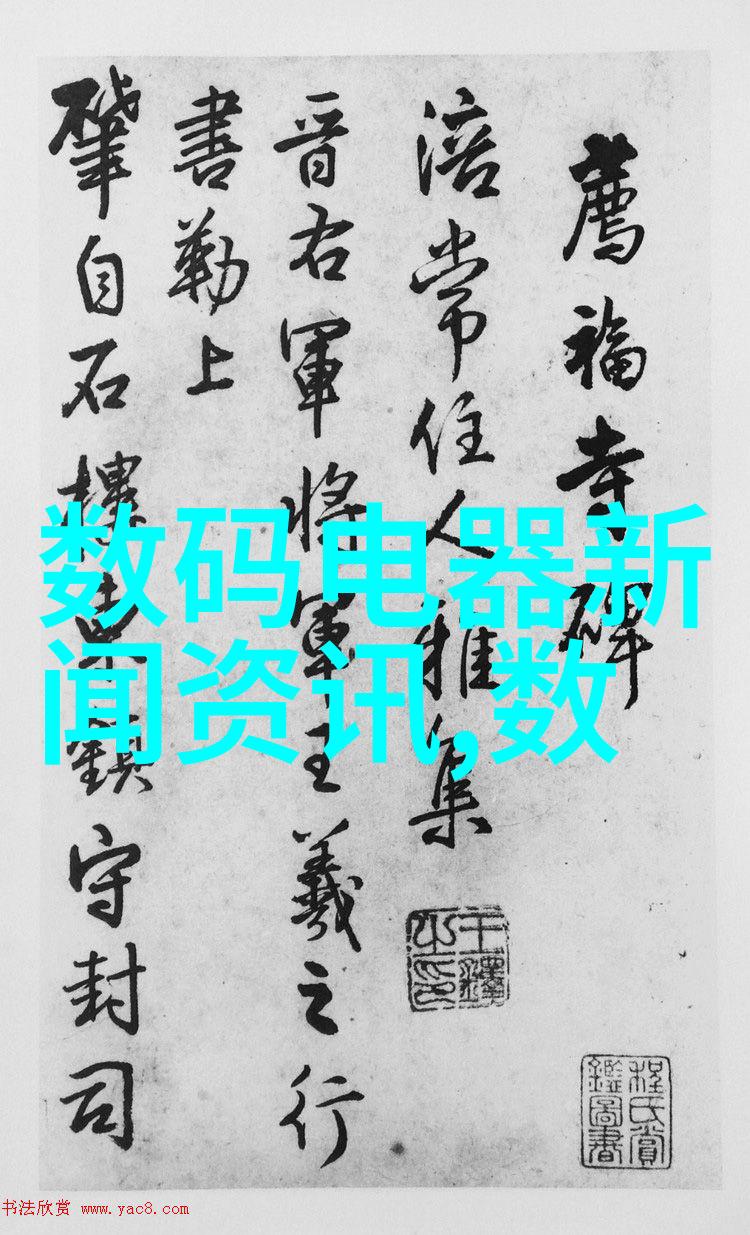 薦福寺碑
涪常住人雅集
晉右軍將軍王羲之行
書勒上
肇自石樓
鎮守封司
王鐸之印
程氏賞鑑圖書
数码电器新
闻资讯,数
书法欣赏 www.yac8.com